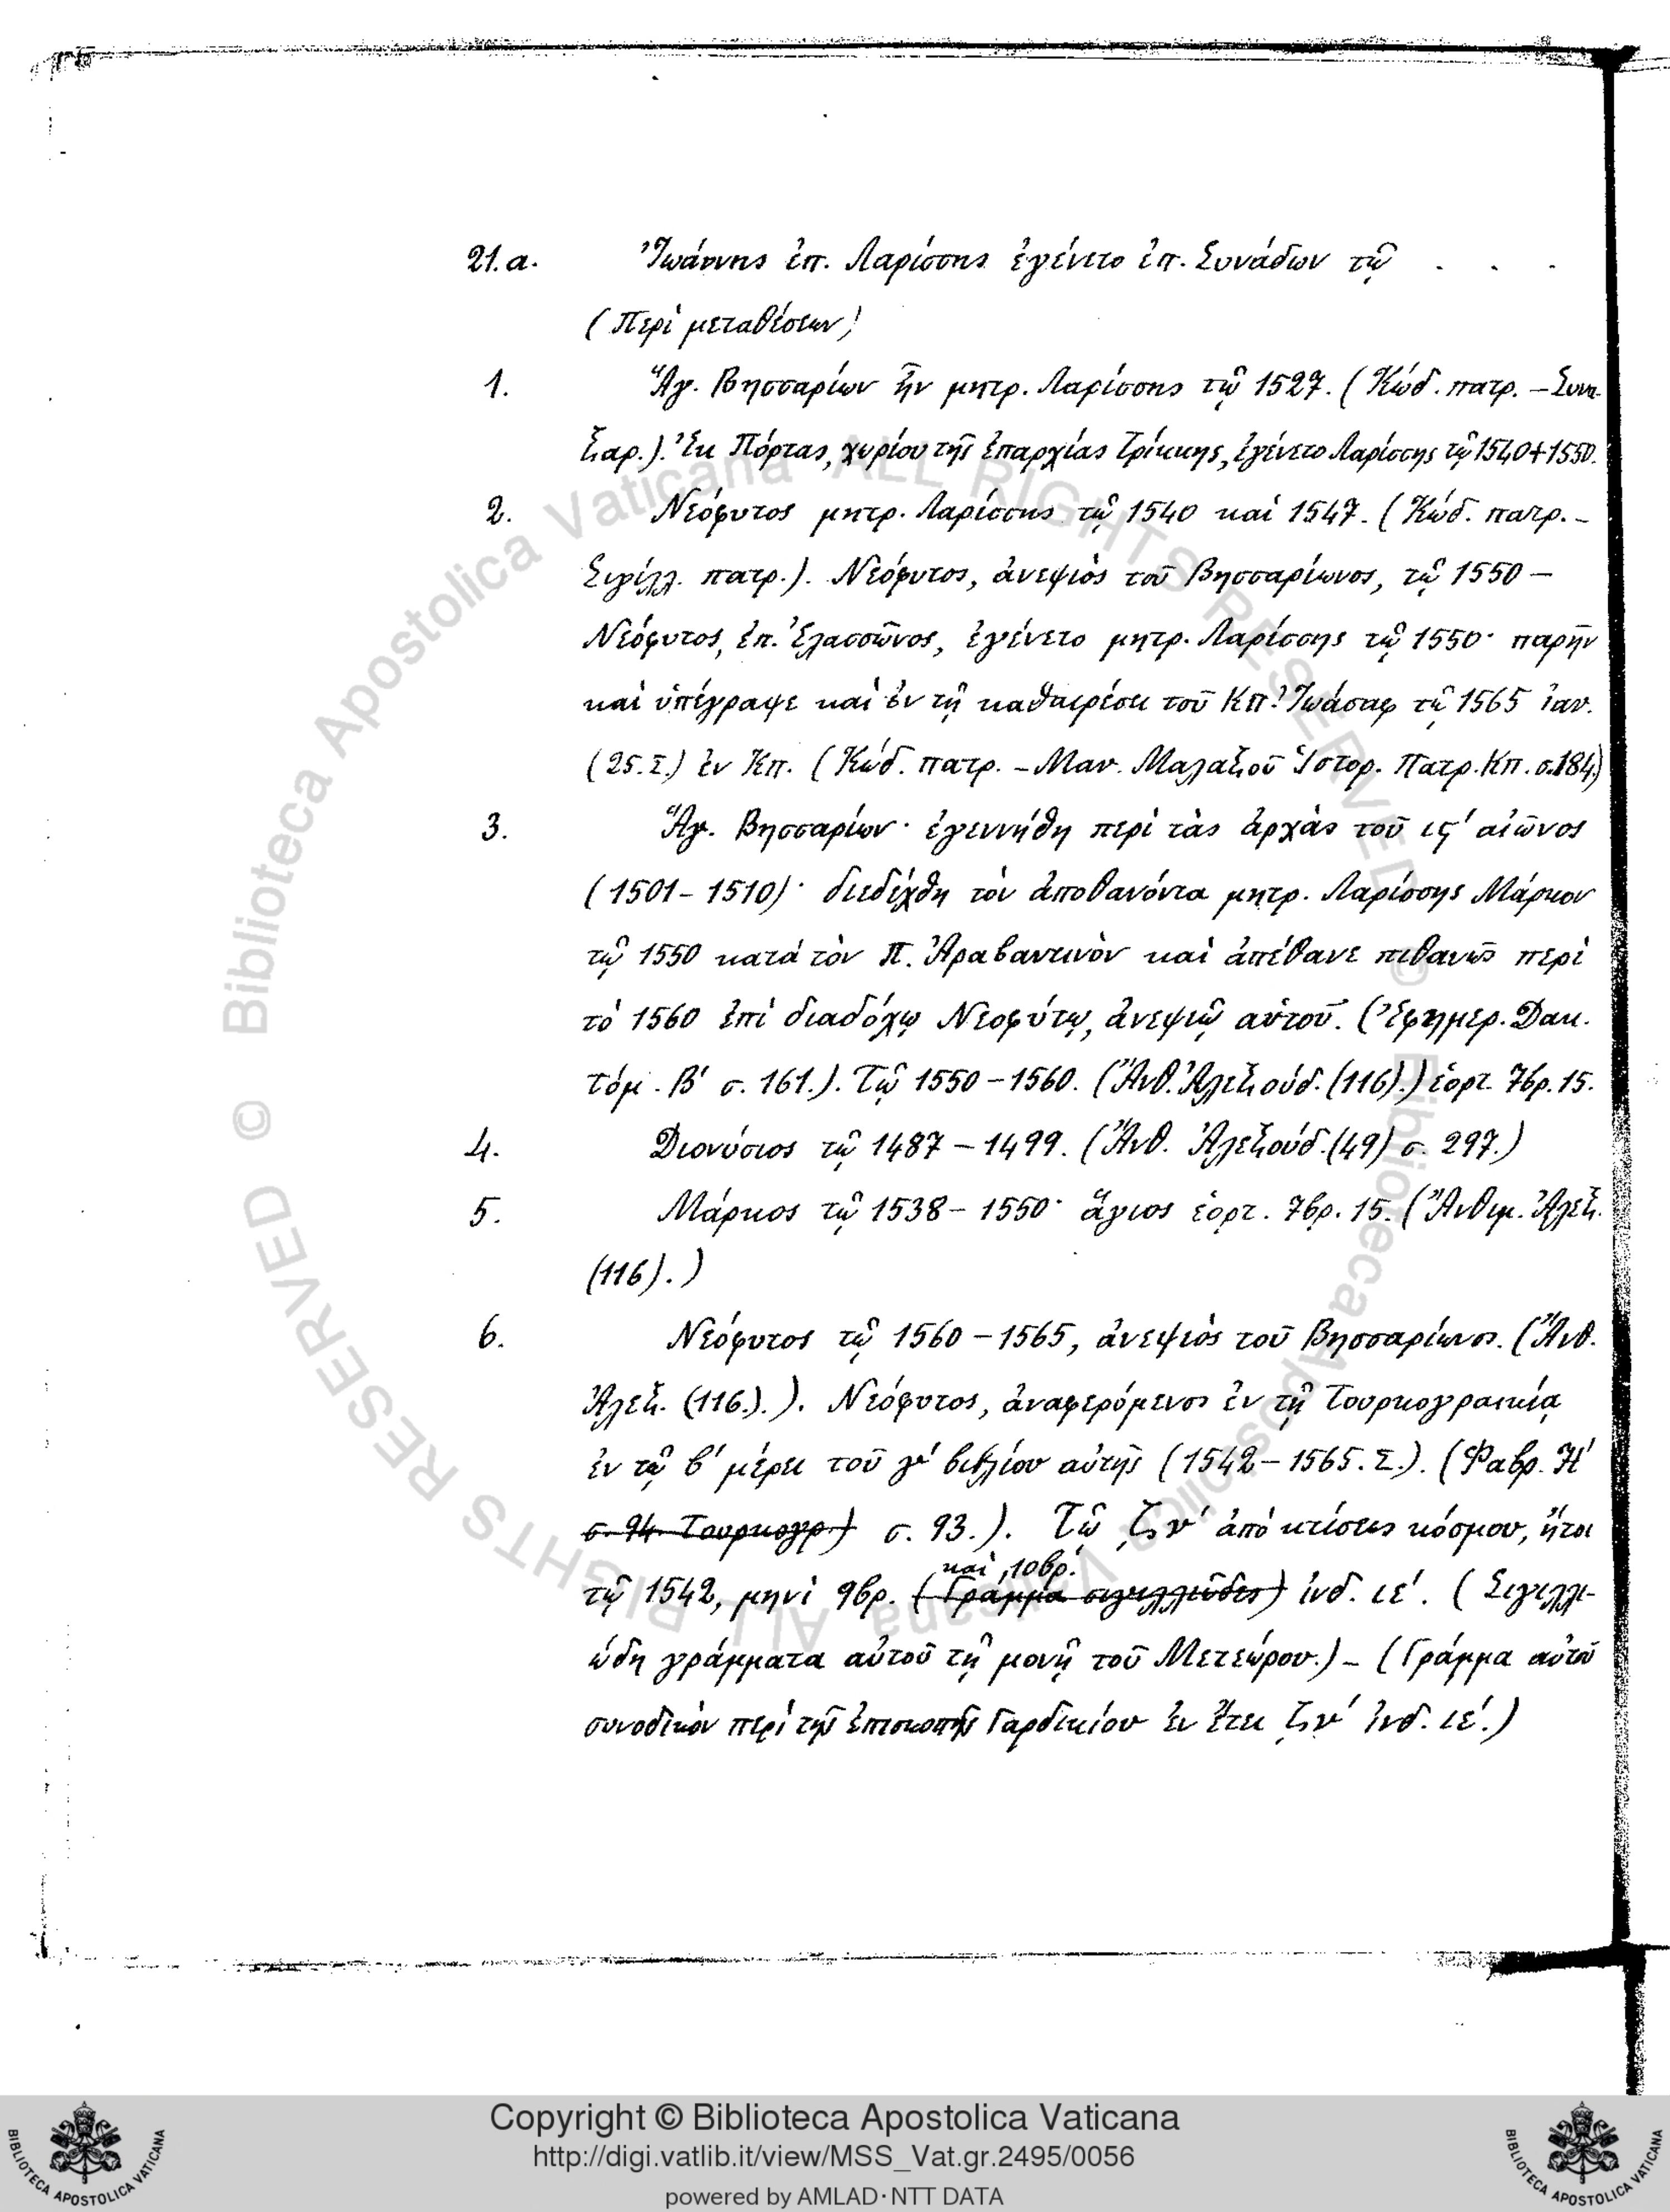 21.α. Ἰωάννης ἐπ. Λαρίσσης ἐγένετο ἐπ. Συνάδων τῷ . . .
(Περὶ μεταθέσεων)
1. Ἅγ. Βησσαρίων ἦν μητρ. Λαρίσσης τῷ 1527. (Κώδ. πατρ. – Συνα-
ξαρ.). Ἐκ Πόρτας, χωρίου τῆς ἐπαρχίας Τρίκκης, ἐγένετο Λαρίσσης τῷ 1540 + 1550.
2. Νεόφυτος μητρ. Λαρίσσης τῷ 1540 καὶ 1547. (Κώδ. πατρ. –
Σιγίλλ. πατρ.). Νεόφυτος, ἀνεψιὸς τοῦ Βησσαρίωνος, τῷ 1550 –
Νεόφυτος, ἐπ. Ἐλασσῶνος, ἐγένετο μητρ. Λαρίσσης τῷ 1550· παρῆν
καὶ ὑπέγραψε καὶ ἐν τῇ καθαιρέσει τοῦ Κπ. Ἰωάσαφ τῷ 1565 ἰαν.
(25.Σ.) ἐν Κπ. (Κώδ. πατρ. – Μαν. Μαλαξοῦ Ἱστορ. Πατρ. Κπ. σ. 184.)
3. Ἅγ. Βησσαρίων· ἐγεννήθη περὶ τὰς ἀρχὰς τοῦ ις′ αἰῶνος
(1501 – 1510)· διεδέχθη τὸν ἀποθανόντα μητρ. Λαρίσσης Μάρκον
τῷ 1550 κατὰ τὸν Π. Ἀραβαντινὸν καὶ ἀπέθανε πιθανῶς περὶ
τὸ 1560 ἐπὶ διαδόχῳ Νεοφύτῳ, ἀνεψιῷ αὐτοῦ. (Ἐφημερ. Δακ.
τόμ. Β′ σ. 161.). Τῷ 1550 – 1560. (Ἄνθ. Ἀλεξούδ. (116).) ἑορτ. 7βρ. 15.
4. Διονύσιος τῷ 1487 – 1499. (Ἄνθ. Ἀλεξούδ. (49) σ. 297.)
5. Μάρκος τῷ 1538 – 1550· ἅγιος ἑορτ. 7βρ. 15. (Ἄνθιμ. Ἀλεξ.
(116).)
6. Νεόφυτος τῷ 1560 – 1565, ἀνεψιὸς τοῦ Βησσαρίωνος. (Ἄνθ.
Ἀλεξ. (116.).). Νεόφυτος, ἀναφερόμενος ἐν τῇ Τουρκογραικίᾳ
ἐν τῷ β′ μέρει τοῦ γ′ βιβλίου αὐτῆς (1542 – 1565. Σ.). (Φαβρ. Η′
σ. 94. Τουρκογρ.) σ. 93.). Τῷ ͵ζν′ ἀπὸ κτίσεως κόσμου, ἤτοι
καὶ, 10βρ.
τῷ 1542, μηνὶ 9βρ. (Γράμμα σιγιλλιῶδες) ἰνδ. ιέ. (Σιγιλλι-
ώδη γράμματα αὐτοῦ τῇ μονῇ τοῦ Μετεώρου.) – (Γράμμα αὐτοῦ
συνοδικὸν περὶ τῆς ἐπισκοπῆς Γαρδικίου ἐν ἔτει ͵ζν′ ἰνδ. ιέ.)
© Biblioteca Apostolica Vaticana ALL RIGHTS RESERVED
© Biblioteca Apostolica Vaticana ALL RIGHTS RESERVED
Copyright © Biblioteca Apostolica Vaticana
http://digi.vatlib.it/view/MSS_Vat.gr.2495/0056
powered by AMLAD·NTT DATA
BIBLIOTECA APOSTOLICA VATICANA
BIBLIOTECA APOSTOLICA VATICANA